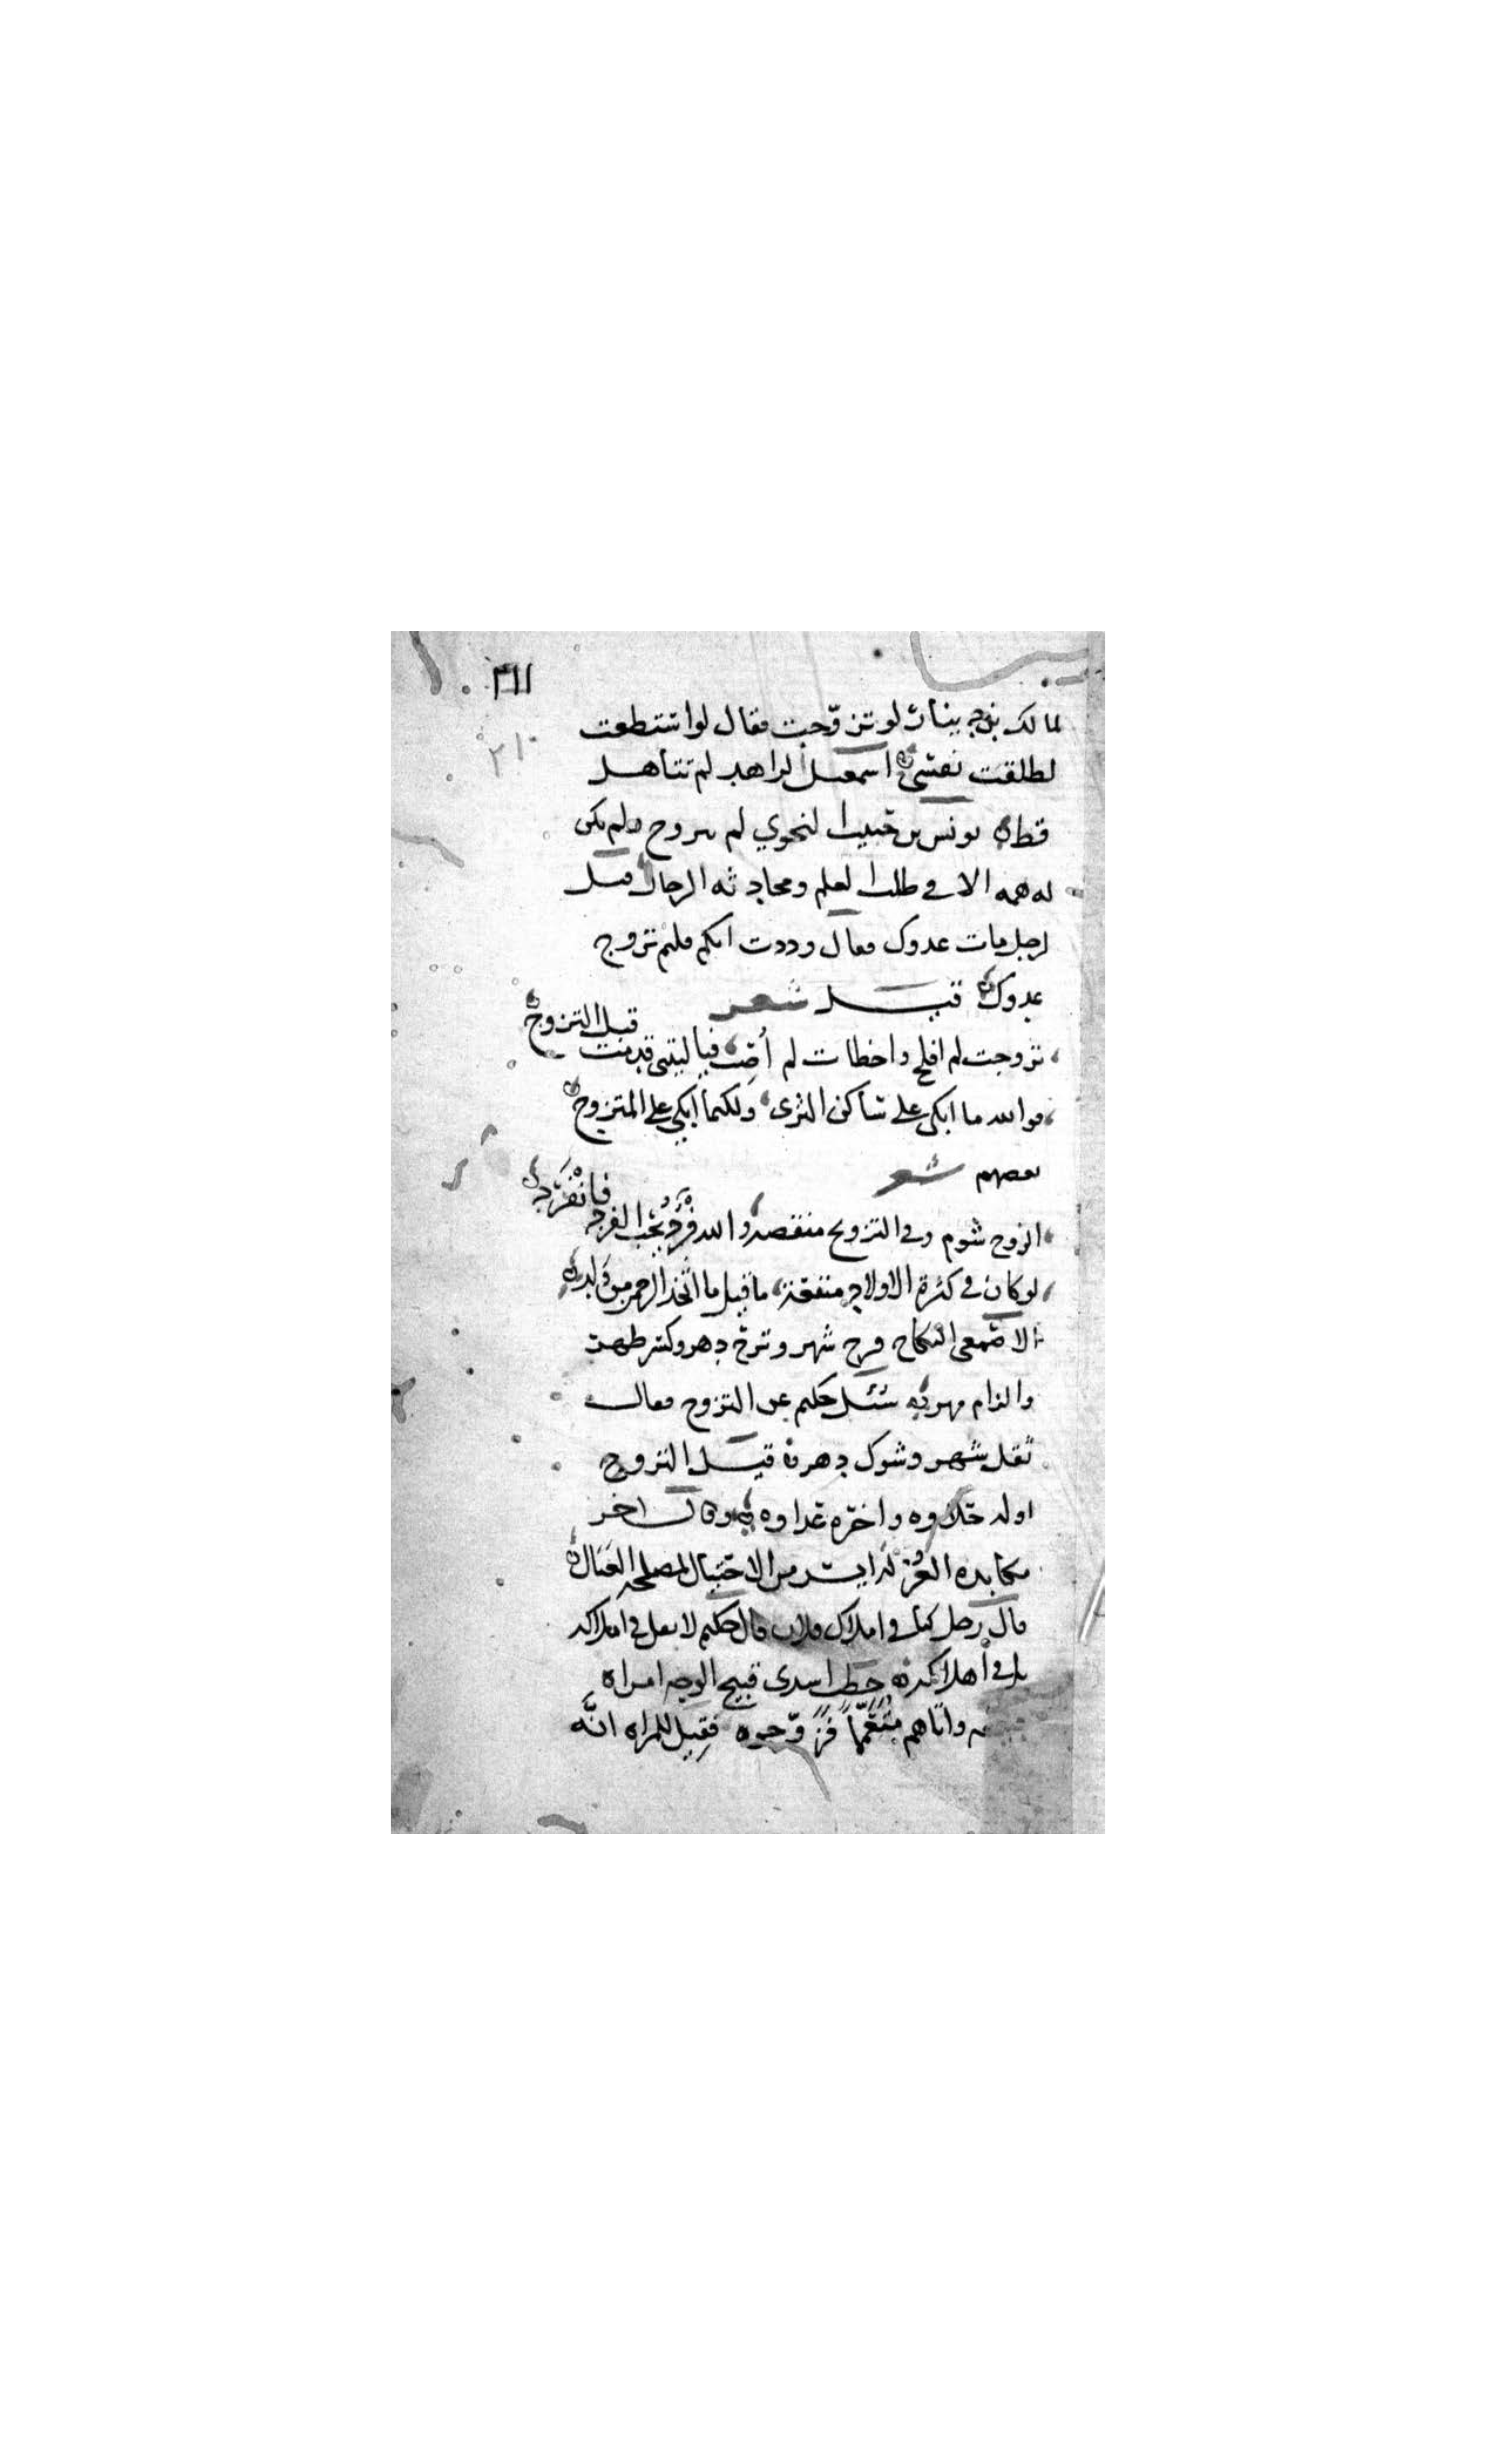 ٣١١
٢١٠
لمالك بن دينار لو تزوّجت فقال لو استطعت
لطلقت نفسي اسمعيل الزاهد لم يتأهل
قط يونس بن حبيب النحوي لم يتزوج ولم يكن
له همه الا في طلب العلم ومحادثه الرجال قيل
لرجل مات عدوك فقال وددت انكم قلتم تزوج
عدوك قيل شعر
تزوجت لم افلح واخطات لم أصب فيا ليتني قد مت قبل التزوج
فوالله ما ابكي على ساكن الثرى ولكنما ابكي على المتزوج
بعضهم شعر
الزوج شوم وفي التزويج منقصة والله فَرْدٌ يُحب الفرد فانْفَرِد
لو كان في كثرة الاولاد منفعة ما قيل ما اتخذ الرحمن من وَلد
الاصمعي النكاح فرح شهر وترح دهر وكسر ظهر
والزام مهر سئل حكيم عن التزوج فقال
ثقل شهر وشوك دهر قيل التزوج
اوله حلاوه واخره عداوه وقال اخر
مكابده العزبة ايسر من الاحتيال لمصلحه العيال
قال رجل كنا في املاك فلان قال حكيم لا تقل في املاكه
بل في أهلاكه خطب اسدي قبيح الوجه امراه
واتاهم مُتَعَمِّماً فزوّجوه فقيل للمراه انَّه